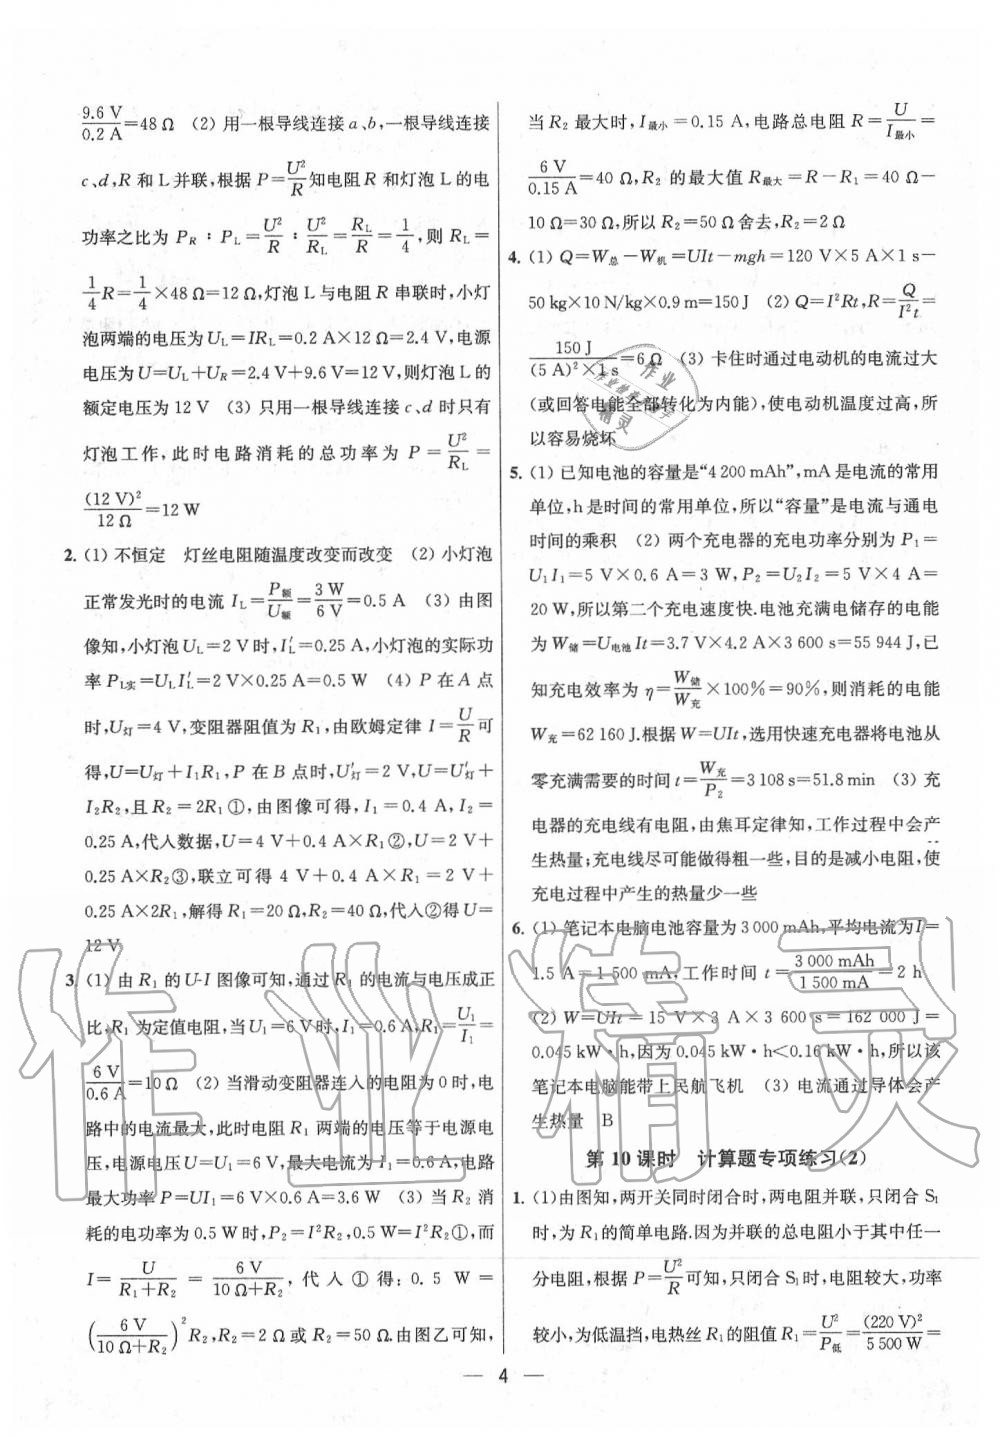 9.6 V/0.2 A=48 Ω　(2) 用一根导线连接 a、b,一根导线连接
c、d,R 和 L 并联,根据 P=U²/R知电阻 R 和灯泡 L 的电
功率之比为 P_R∶P_L=U²/R∶U²/R_L=R_L/R=1/4,则 R_L=
1/4R=1/4×48 Ω=12 Ω,灯泡 L 与电阻 R 串联时,小灯
泡两端的电压为 U_L=IR_L=0.2 A×12 Ω=2.4 V,电源
电压为 U=U_L+U_R=2.4 V+9.6 V=12 V,则灯泡 L 的
额定电压为 12 V　(3) 只用一根导线连接 c、d 时只有
灯泡工作,此时电路消耗的总功率为 P=U²/R_L=
(12 V)²/12 Ω=12 W
2. (1) 不恒定　灯丝电阻随温度改变而改变　(2) 小灯泡
正常发光时的电流 I_L=P额/U额=3 W/6 V=0.5 A　(3) 由图
像知,小灯泡 U_L=2 V 时,I′_L=0.25 A,小灯泡的实际功
率 P_L实=U_L I′_L=2 V×0.25 A=0.5 W　(4) P 在 A 点
时,U灯=4 V,变阻器阻值为 R₁,由欧姆定律 I=U/R可
得,U=U灯+I₁R₁,P 在 B 点时,U′灯=2 V,U=U′灯+
I₂R₂,且 R₂=2R₁①,由图像可得,I₁=0.4 A,I₂=
0.25 A,代入数据,U=4 V+0.4 A×R₁②,U=2 V+
0.25 A×R₂③,联立可得 4 V+0.4 A×R₁=2 V+
0.25 A×2R₁,解得 R₁=20 Ω,R₂=40 Ω,代入②得 U=
12 V
3. (1) 由 R₁ 的 U-I 图像可知,通过 R₁ 的电流与电压成正
比,R₁ 为定值电阻,当 U₁=6 V 时,I₁=0.6 A,R₁=U₁/I₁=
6 V/0.6 A=10 Ω　(2) 当滑动变阻器连入的电阻为 0 时,电
路中的电流最大,此时电阻 R₁ 两端的电压等于电源电
压,电源电压 U=U₁=6 V,最大电流 I=0.6 A,电路
最大功率 P=UI₁=6 V×0.6 A=3.6 W　(3) 当 R₂ 消
耗的电功率为 0.5 W 时,P₂=I²R₂,0.5 W=I²R₂①,而
I=U/(R₁+R₂)=6 V/(10 Ω+R₂),代入①得:0.5 W=
(6 V/(10 Ω+R₂))²R₂,R₂=2 Ω 或 R₂=50 Ω.由图乙可知,
当 R₂ 最大时,I最小=0.15 A,电路总电阻 R=U/I最小=
6 V/0.15 A=40 Ω,R₂ 的最大值 R最大=R−R₁=40 Ω−
10 Ω=30 Ω,所以 R₂=50 Ω 舍去,R₂=2 Ω
4. (1) Q=W总−W机=UIt−mgh=120 V×5 A×1 s−
50 kg×10 N/kg×0.9 m=150 J　(2) Q=I²Rt,R=Q/I²t=
150 J/(5 A)²×1 s=6 Ω　(3) 卡住时通过电动机的电流过大
(或回答电能全部转化为内能),使电动机温度过高,所
以容易烧坏
5. (1) 已知电池的容量是“4 200 mAh”,mA 是电流的常用
单位,h 是时间的常用单位,所以“容量”是电流与通电
时间的乘积　(2) 两个充电器的充电功率分别为 P₁=
U₁I₁=5 V×0.6 A=3 W,P₂=U₂I₂=5 V×4 A=
20 W,所以第二个充电速度快.电池充满电储存的电能
为 W储=U电池It=3.7 V×4.2 A×3 600 s=55 944 J,已
知充电效率为 η=W储/W充×100%=90%,则消耗的电能
W充=62 160 J.根据 W=UIt,选用快速充电器将电池从
零充满需要的时间 t=W充/P₂=3 108 s=51.8 min　(3) 充
电器的充电线有电阻,由焦耳定律知,工作过程中会产
生热量;充电线尽可能做得粗一些,目的是减小电阻,使
充电过程中产生的热量少一些
6. (1) 笔记本电脑电池容量为 3 000 mAh,平均电流为 I=
1.5 A=1 500 mA,工作时间 t=3 000 mAh/1 500 mA=2 h
(2) W=UIt=15 V×3 A×3 600 s=162 000 J=
0.045 kW·h,因为 0.045 kW·h<0.16 kW·h,所以该
笔记本电脑能带上民航飞机　(3) 电流通过导体会产
生热量　B
第 10 课时　计算题专项练习(2)
1. (1)由图知,两开关同时闭合时,两电阻并联,只闭合 S₁
时,为 R₁ 的简单电路.因为并联的总电阻小于其中任一
分电阻,根据 P=U²/R可知,只闭合 S₁ 时,电阻较大,功率
较小,为低温挡,电热丝 R₁ 的阻值 R₁=U²/P低=(220 V)²/5 500 W=
— 4 —
作业精灵